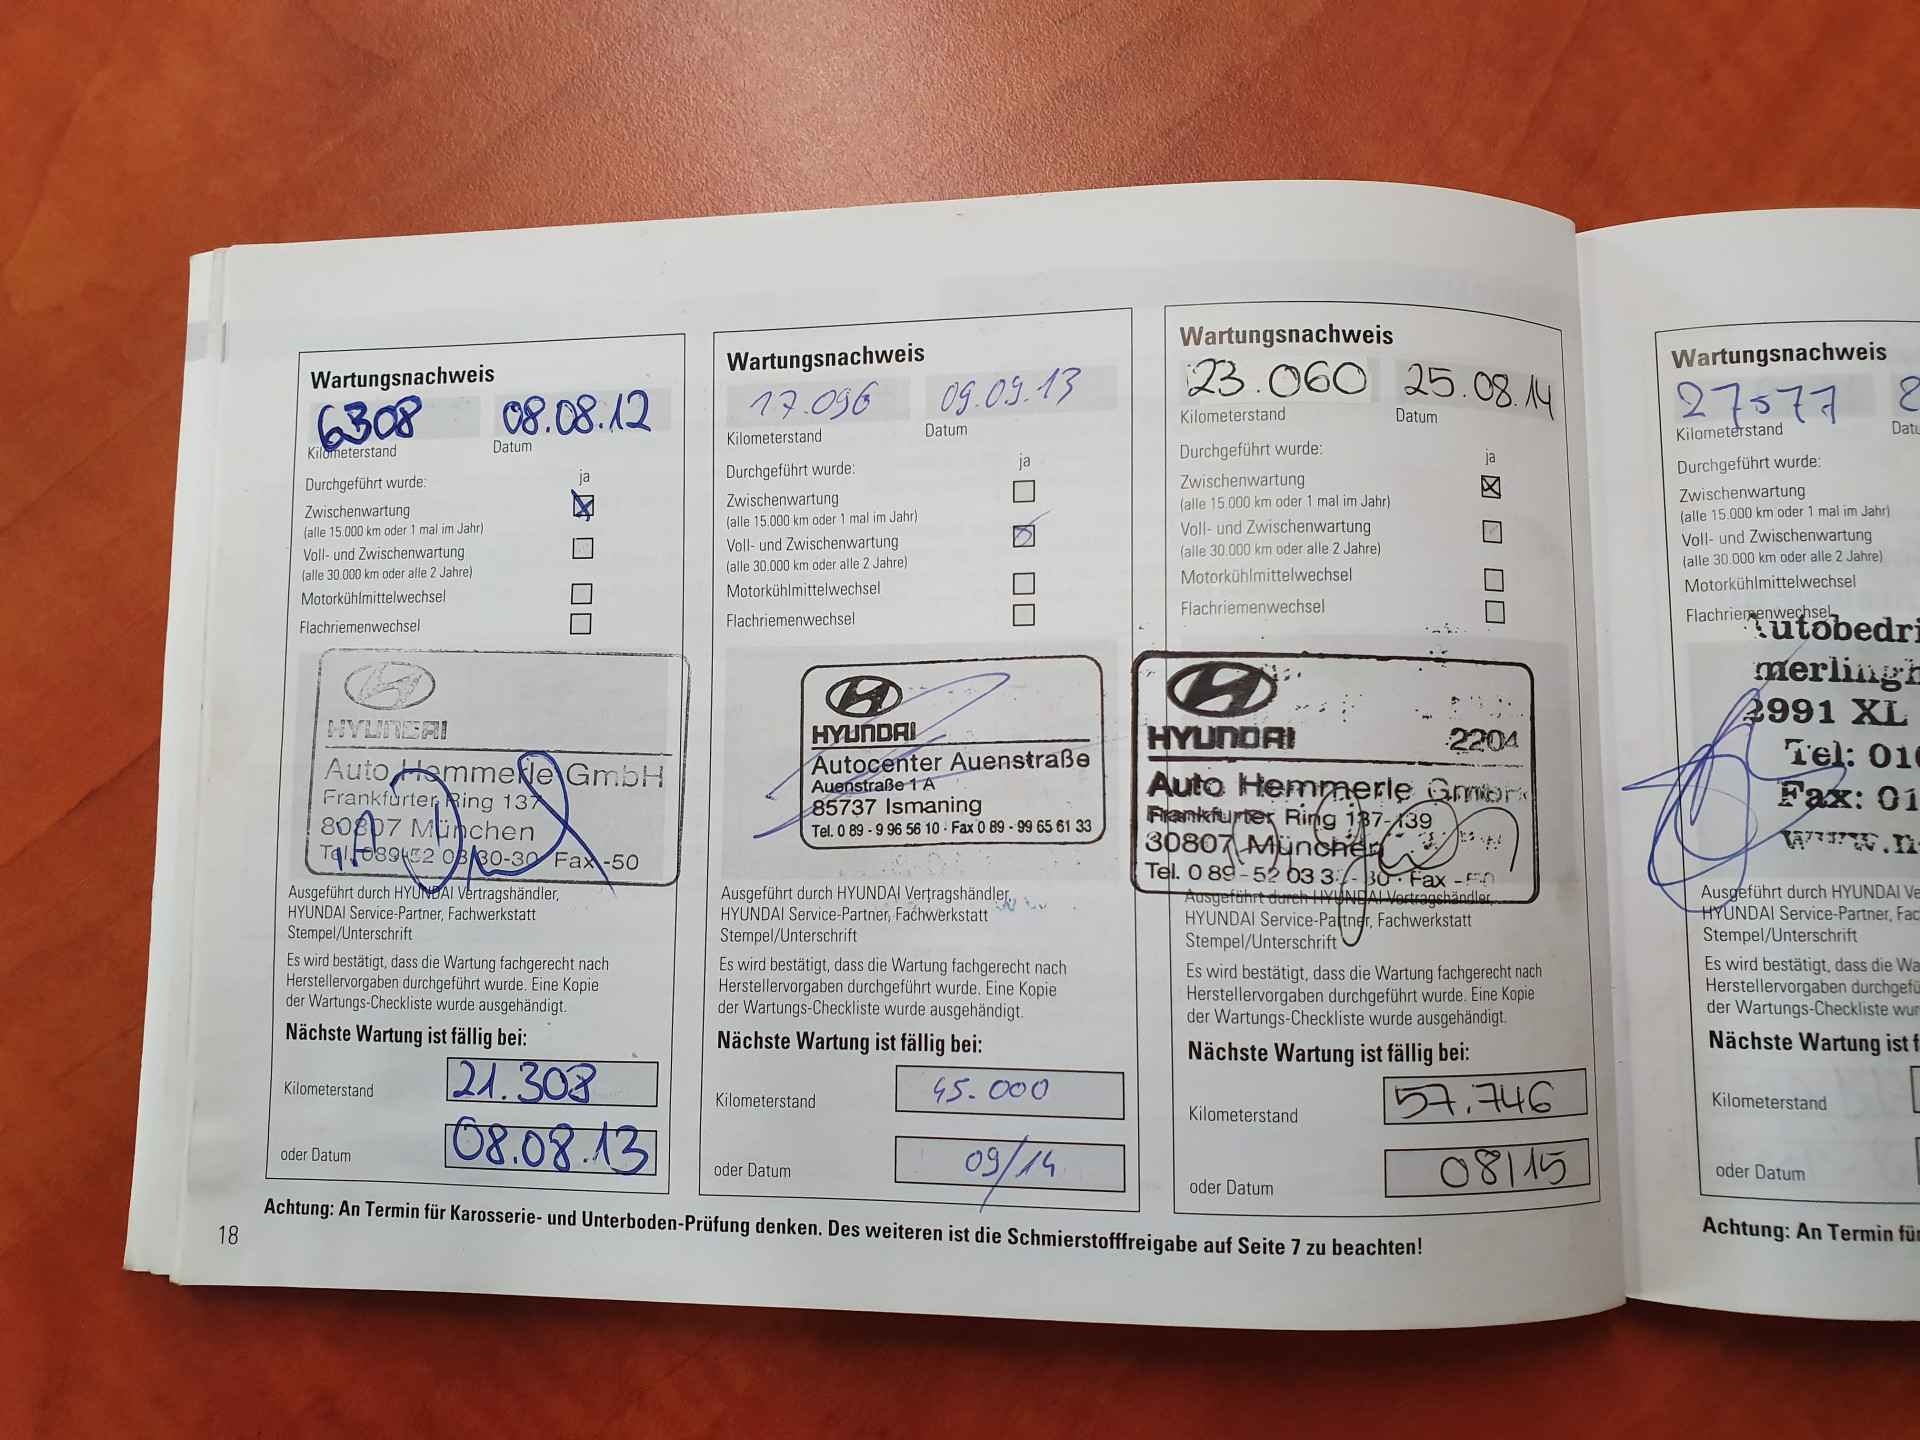 Wartungsnachweis
6308 08.08.12
Kilometerstand Datum
Durchgeführt wurde: ja
Zwischenwartung
(alle 15.000 km oder 1 mal im Jahr)
Voll- und Zwischenwartung
(alle 30.000 km oder alle 2 Jahre)
Motorkühlmittelwechsel
Flachriemenwechsel
HYUNDAI
Auto Hemmerle GmbH
Frankfurter Ring 137
80807 München
Tel. 089-52 03 30-30 Fax -50
Ausgeführt durch HYUNDAI Vertragshändler,
HYUNDAI Service-Partner, Fachwerkstatt
Stempel/Unterschrift
Es wird bestätigt, dass die Wartung fachgerecht nach
Herstellervorgaben durchgeführt wurde. Eine Kopie
der Wartungs-Checkliste wurde ausgehändigt.
Nächste Wartung ist fällig bei:
Kilometerstand 21.308
oder Datum 08.08.13
Wartungsnachweis
17.096 09.09.13
Kilometerstand Datum
Durchgeführt wurde: ja
Zwischenwartung
(alle 15.000 km oder 1 mal im Jahr)
Voll- und Zwischenwartung
(alle 30.000 km oder alle 2 Jahre)
Motorkühlmittelwechsel
Flachriemenwechsel
HYUNDAI
Autocenter Auenstraße
Auenstraße 1 A
85737 Ismaning
Tel. 0 89 - 9 96 56 10 · Fax 0 89 - 99 65 61 33
Ausgeführt durch HYUNDAI Vertragshändler,
HYUNDAI Service-Partner, Fachwerkstatt
Stempel/Unterschrift
Es wird bestätigt, dass die Wartung fachgerecht nach
Herstellervorgaben durchgeführt wurde. Eine Kopie
der Wartungs-Checkliste wurde ausgehändigt.
Nächste Wartung ist fällig bei:
Kilometerstand 45.000
oder Datum 09/14
Wartungsnachweis
23.060 25.08.14
Kilometerstand Datum
Durchgeführt wurde: ja
Zwischenwartung
(alle 15.000 km oder 1 mal im Jahr)
Voll- und Zwischenwartung
(alle 30.000 km oder alle 2 Jahre)
Motorkühlmittelwechsel
Flachriemenwechsel
HYUNDAI 2204
Auto Hemmerle GmbH
Frankfurter Ring 137-139
80807 München
Tel. 0 89 - 52 03 3 - 30 · Fax - 50
Ausgeführt durch HYUNDAI Vertragshändler,
HYUNDAI Service-Partner, Fachwerkstatt
Stempel/Unterschrift
Es wird bestätigt, dass die Wartung fachgerecht nach
Herstellervorgaben durchgeführt wurde. Eine Kopie
der Wartungs-Checkliste wurde ausgehändigt.
Nächste Wartung ist fällig bei:
Kilometerstand 57.746
oder Datum 08/15
Achtung: An Termin für Karosserie- und Unterboden-Prüfung denken. Des weiteren ist die Schmierstofffreigabe auf Seite 7 zu beachten!
18
Wartungsnachweis
27577
Kilometerstand
Durchgeführt wurde:
Zwischenwartung
(alle 15.000 km oder 1 mal im Jahr)
Voll- und Zwischenwartung
(alle 30.000 km oder alle 2 Jahre)
Motorkühlmittelwechsel
Flachriemenwechsel
2991 XL
Tel: 01
Fax: 01
Ausgeführt durch HYUNDAI
HYUNDAI Service-Partner,
Stempel/Unterschrift
Es wird bestätigt, dass die
Herstellervorgaben
der Wartungs-Checkliste
Nächste Wartung ist
Kilometerstand
oder Datum
Achtung: An Termin